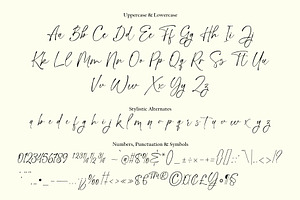 Uppercase & Lowercase
Aa Bb Cc Dd Ee Ff Gg Hh Ii Jj
Kk Ll Mm Nn Oo Pp Qq Rr Ss Tt Uu
Vv Ww Xx Yy Zz
Stylistic Alternates
a b c d e f g h i j k l m n o p q r s t u v w x y z
Numbers, Punctuation & Symbols
0123456789